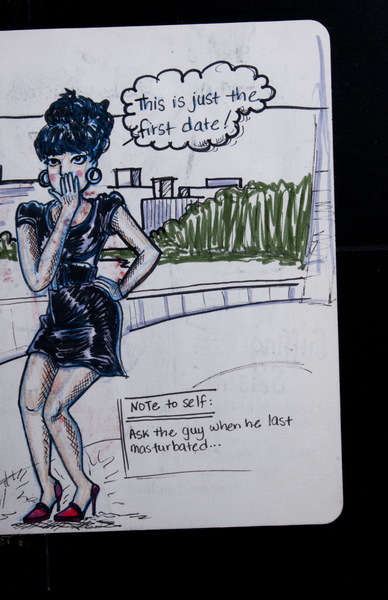 This is just the
first date!
NOTE to self:
Ask the guy when he last
masturbated...